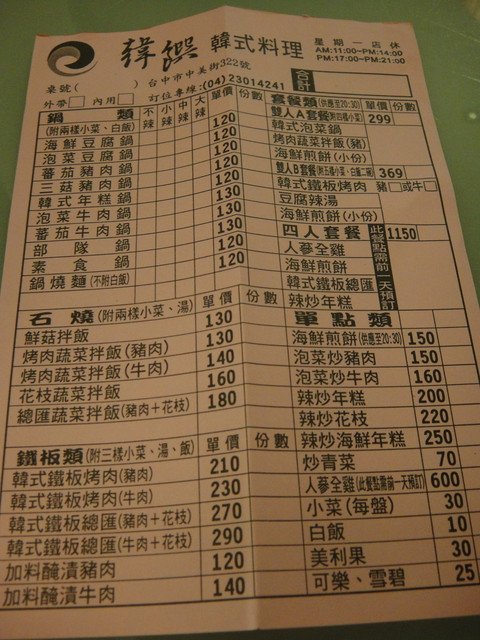 韓饌 韓式料理
星期一店休
AM:11:00~PM:14:00
PM:17:00~PM:21:00
台中市中美街322號
桌號( ) 訂位專線:(04)23014241
外帶 內用
合計
鍋類 不辣 小辣 中辣 大辣 單價 份數
(附兩樣小菜、白飯)
海鮮豆腐鍋 120
泡菜豆腐鍋 120
蕃茄豬肉鍋 120
三菇豬肉鍋 120
韓式年糕鍋 120
泡菜牛肉鍋 130
蕃茄牛肉鍋 130
部隊鍋 130
素食鍋 120
鍋燒麵(不附白飯) 120
石燒(附兩樣小菜、湯) 單價 份數
鮮菇拌飯 130
烤肉蔬菜拌飯(豬肉) 130
烤肉蔬菜拌飯(牛肉) 140
花枝蔬菜拌飯 160
總匯蔬菜拌飯(豬肉+花枝) 180
鐵板類(附三樣小菜、湯、飯) 單價 份數
韓式鐵板烤肉(豬肉) 210
韓式鐵板烤肉(牛肉) 230
韓式鐵板總匯(豬肉+花枝) 270
韓式鐵板總匯(牛肉+花枝) 290
加料醃漬豬肉 120
加料醃漬牛肉 140
套餐類(供應至20:30) 單價 份數
雙人A套餐(附四樣小菜) 299
韓式泡菜鍋
烤肉蔬菜拌飯(豬)
海鮮煎餅(小份)
雙人B套餐(附五樣小菜、白飯二碗) 369
韓式鐵板烤肉 豬 或牛
豆腐辣湯
海鮮煎餅(小份)
四人套餐 1150
此餐點需前一天預訂
人蔘全雞
海鮮煎餅
韓式鐵板總匯
辣炒年糕
單點類
海鮮煎餅(供應至20:30) 150
泡菜炒豬肉 150
泡菜炒牛肉 160
辣炒年糕 200
辣炒花枝 220
辣炒海鮮年糕 250
炒青菜 70
人蔘全雞(此餐點需前一天預訂) 600
小菜(每盤) 30
白飯 10
美利果 30
可樂、雪碧 25